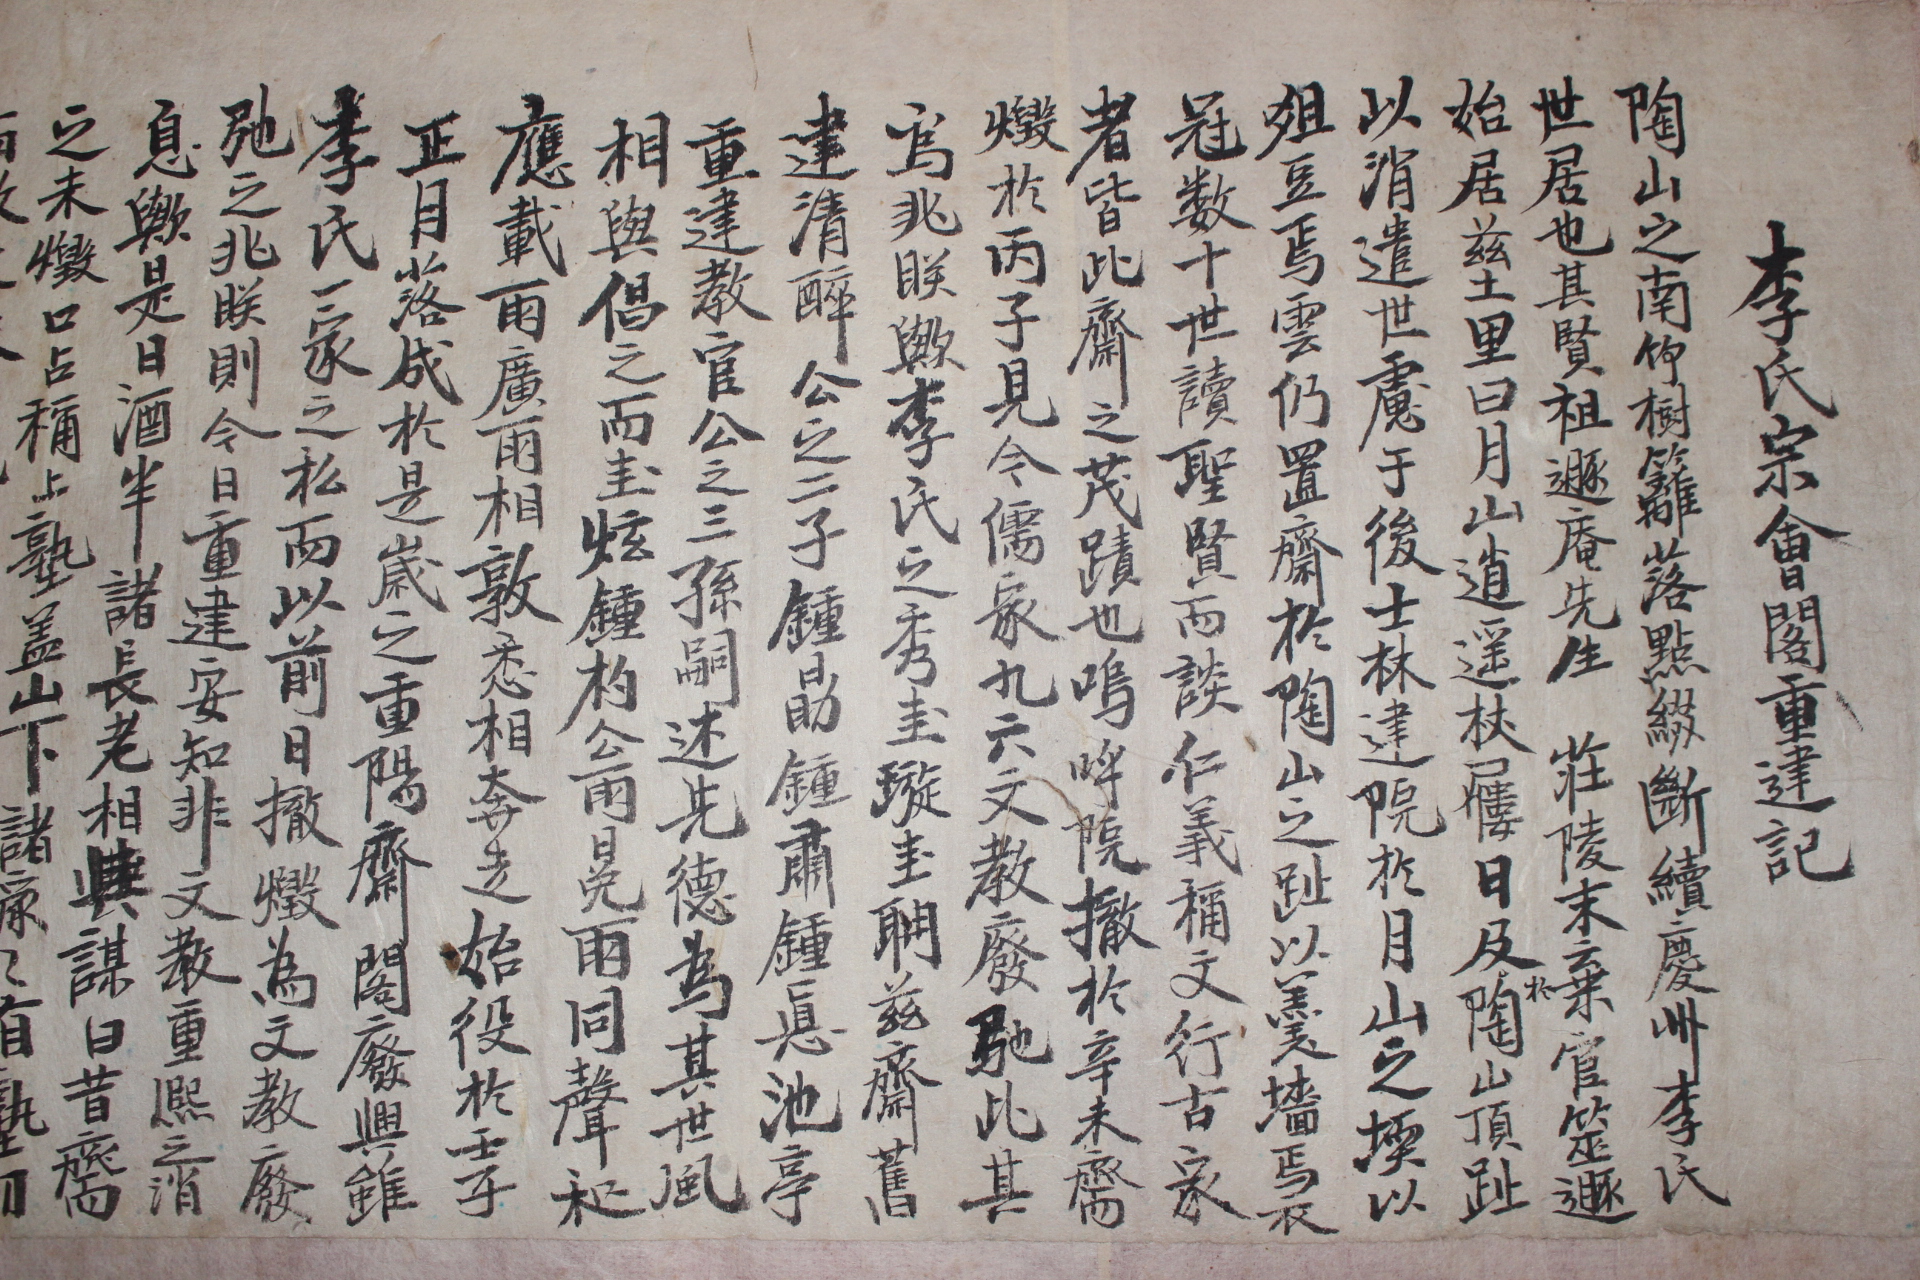 李氏宗會閣重建記
陶山之南竹樹籬落點綴斷續慶州李氏
世居也其賢祖遯庵先生 莊陵末棄官筮遯
始居玆土里曰月山逍遥杖屨日及於陶山頂趾
以消遣世慮于後士林建院於月山之堧以
俎豆焉雲仍置齋於陶山之趾以羹墻焉衣
冠数十世讀聖賢而談仁義稱文行古家
者皆此齋之茂蹟也嗚呼院撤於辛未齋
燬於丙子見今儒家九六文教廢弛此其
焉兆眹歟李氏之秀圭璇圭聃玆齋舊
建清醉公之二子鍾勗鍾肅鍾 池亭
重建教官公之三孫嗣述先德為其世風
相與倡之而圭炫鍾杓公雨冕雨同聲和
應載雨廣雨相敦悉相奔走始役於壬子
正月落成於是歲之重陽齋閣廢興雖
李氏一家之私而以前日撤燬為文教廢
弛之兆眹則今日重建安知非文教重熙之消
息歟是日酒半諸長老相與謀曰昔齋
之未燬口占稱上塾盖山下諸家之有塾